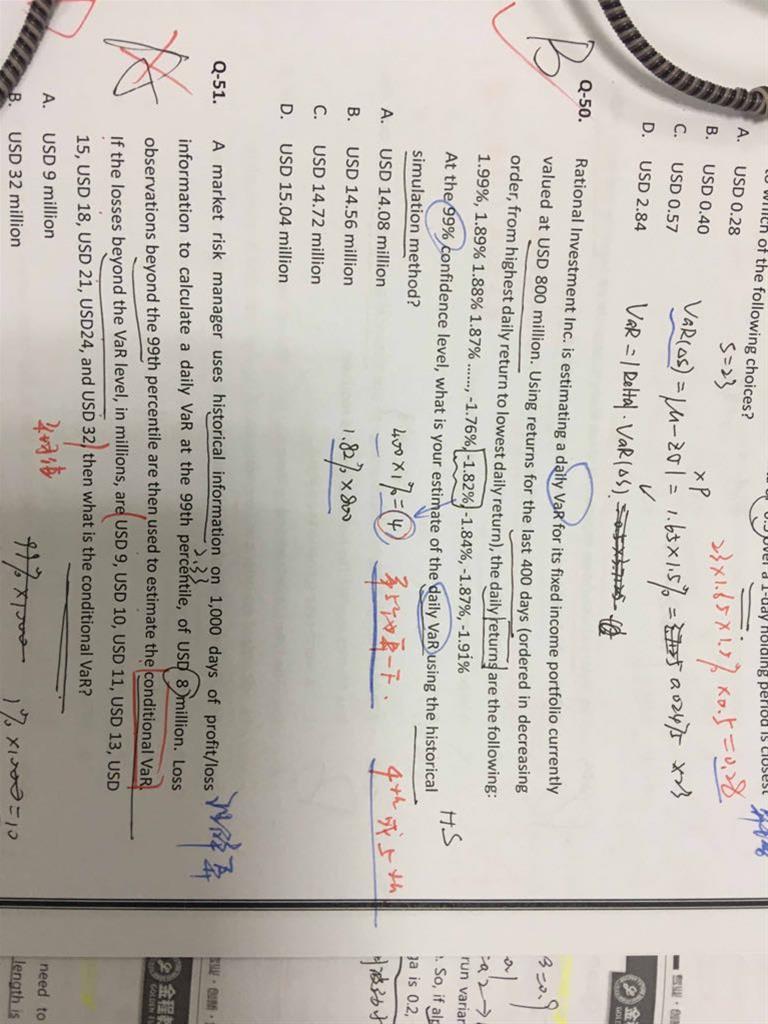 which of the following choices?
over a 1-day holding period is closest
A. USD 0.28
B. USD 0.40
C. USD 0.57
D. USD 2.84
S=23
VaR(ΔS) = |μ-zσ| = 1.65×1.5% =
VaR = |Delta| · VaR(ΔS)
23×1.65×1.5% ×0.5=0.28
B
Q-50. Rational Investment Inc. is estimating a daily VaR for its fixed income portfolio currently
valued at USD 800 million. Using returns for the last 400 days (ordered in decreasing
order, from highest daily return to lowest daily return), the daily returns are the following:
1.99%, 1.89% 1.88% 1.87% ......, -1.76%, -1.82%, -1.84%, -1.87%, -1.91%
At the 99% confidence level, what is your estimate of the daily VaR using the historical
simulation method?
HS
A. USD 14.08 million
B. USD 14.56 million
C. USD 14.72 million
D. USD 15.04 million
400×1%=4
1.82%×800
4th 5th
A
Q-51. A market risk manager uses historical information on 1,000 days of profit/loss
information to calculate a daily VaR at the 99th percentile, of USD 8 million. Loss
observations beyond the 99th percentile are then used to estimate the conditional VaR.
If the losses beyond the VaR level, in millions, are USD 9, USD 10, USD 11, USD 13, USD
15, USD 18, USD 21, USD24, and USD 32, then what is the conditional VaR?
A. USD 9 million
B. USD 32 million
平均值
99%×1000
1%×1000=10
金程
need to
length is
So, if
ga is 0.2,
run varian